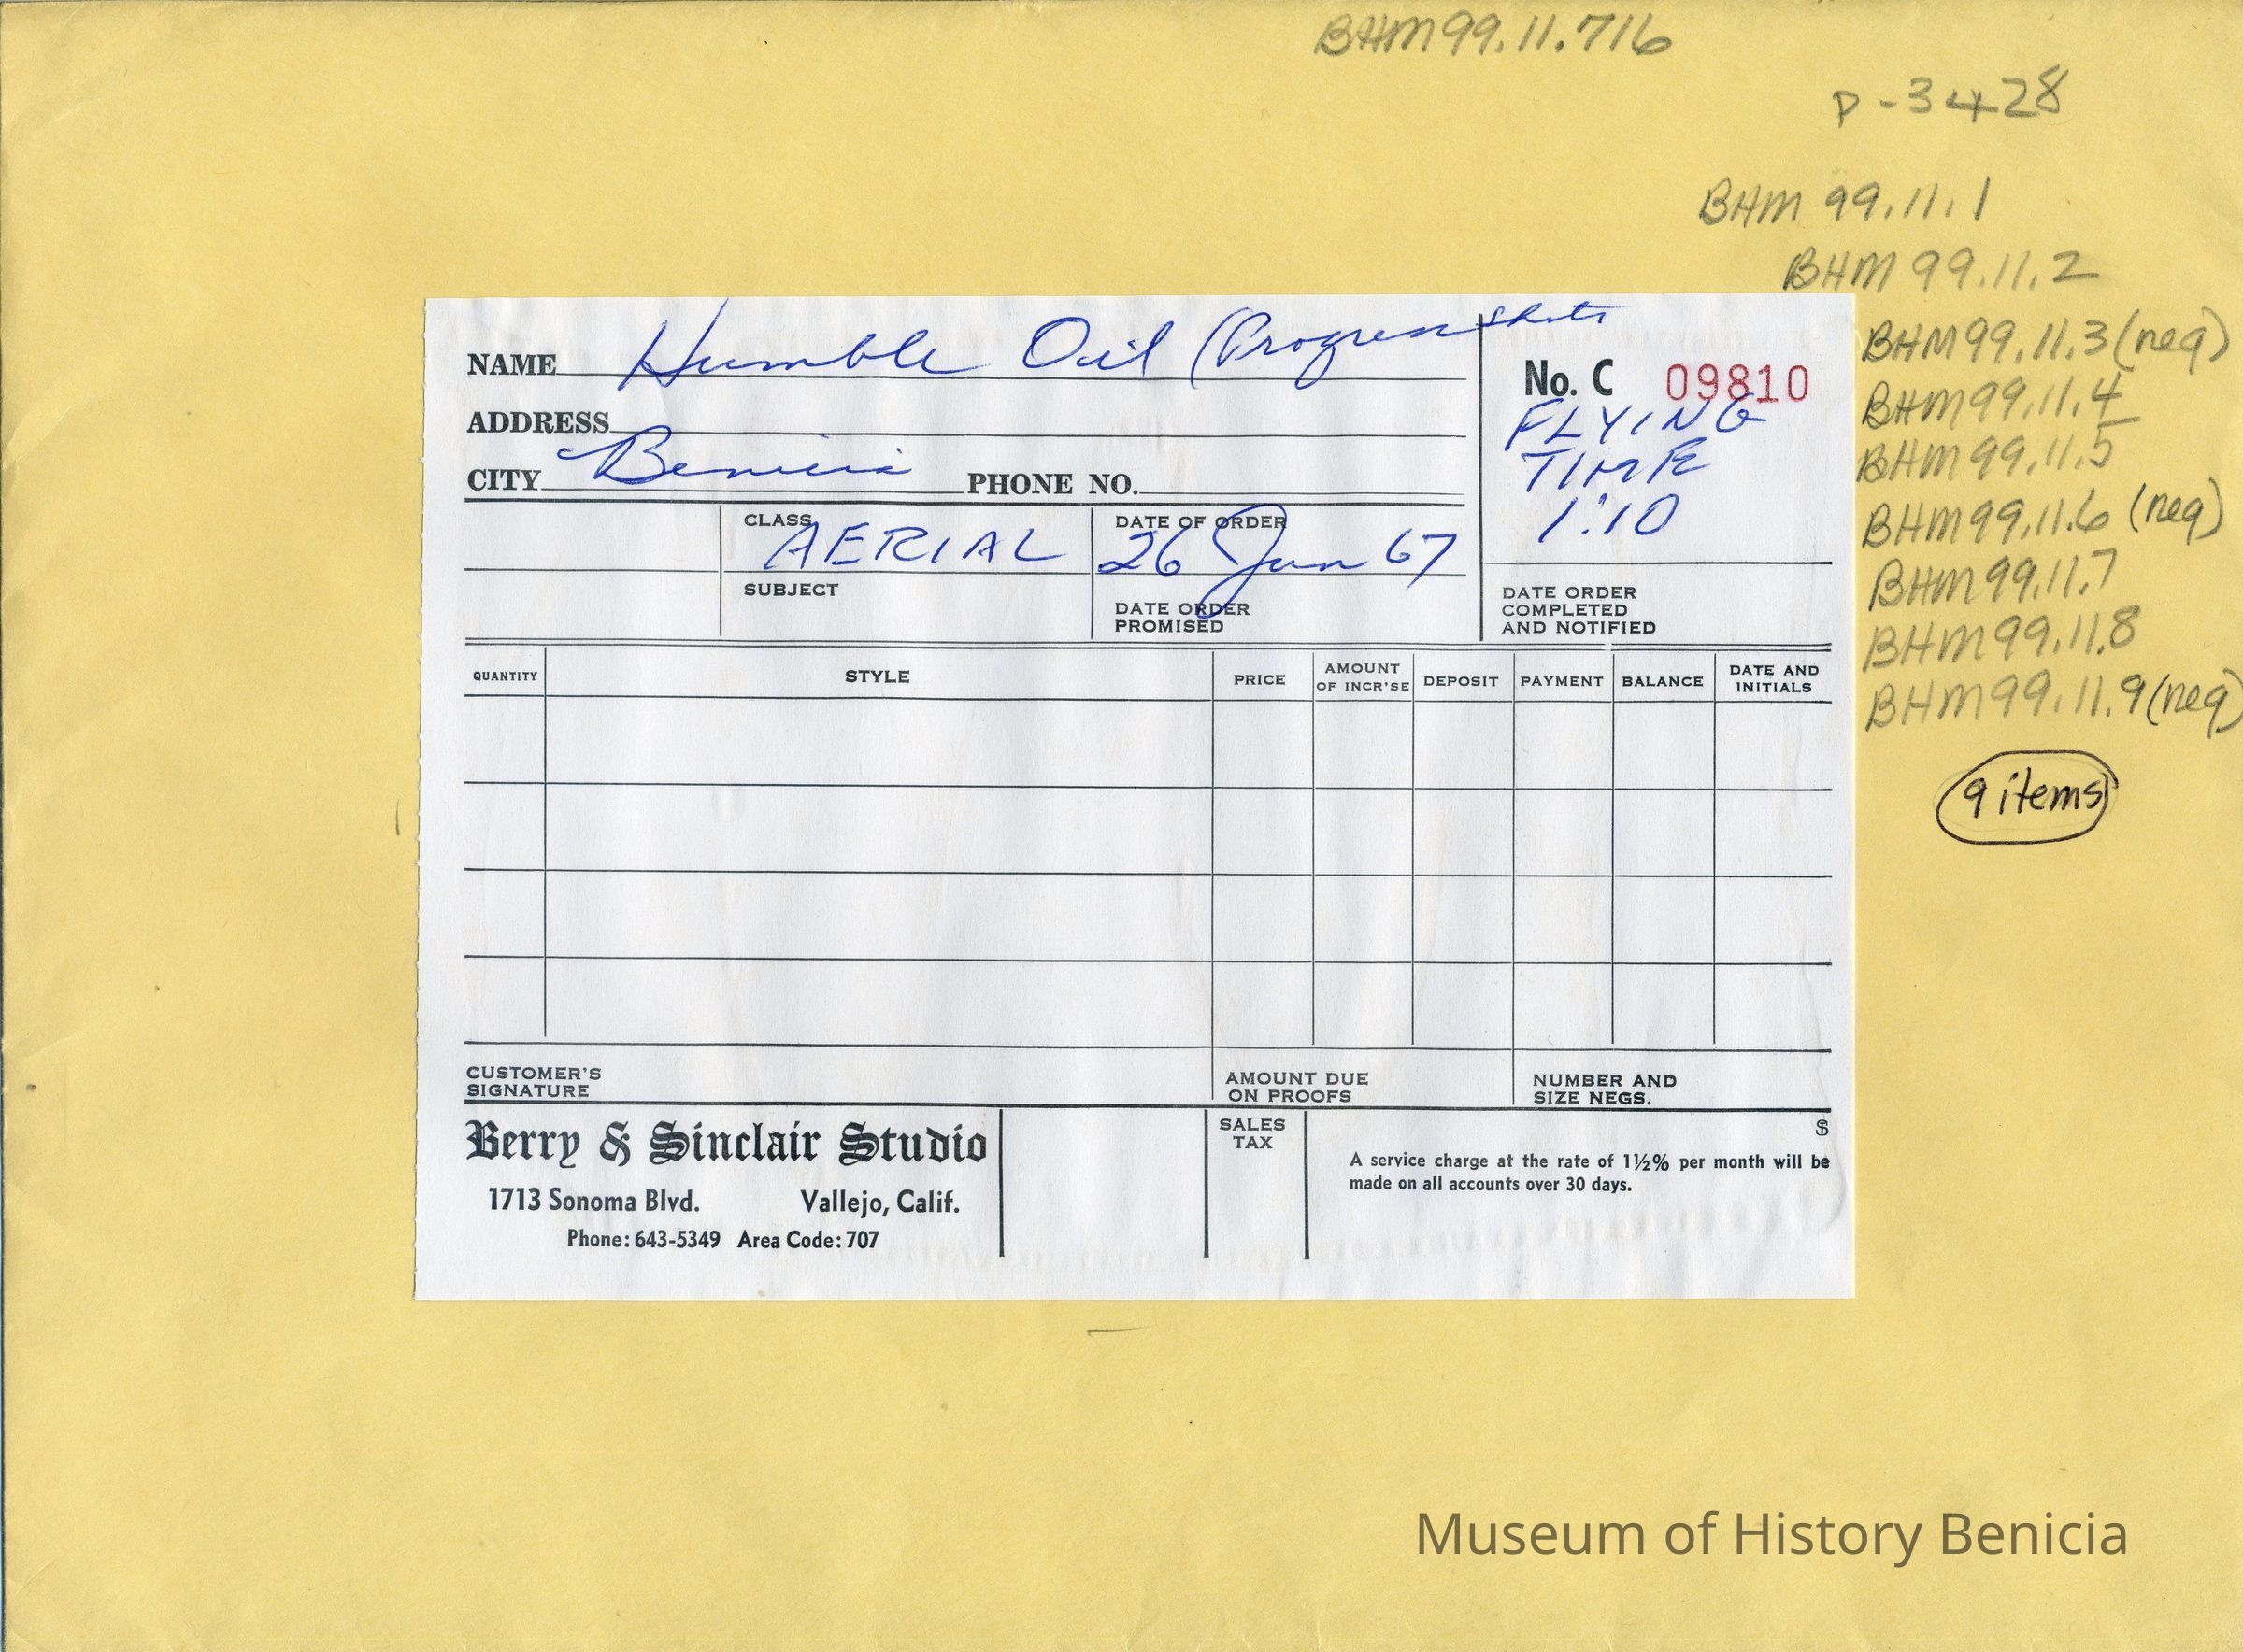 BHM 99.11.716
P-3428
BHM 99.11.1
BHM 99.11.2
BHM 99.11.3 (neg)
BHM 99.11.4
BHM 99.11.5
BHM 99.11.6 (neg)
BHM 99.11.7
BHM 99.11.8
BHM 99.11.9 (neg)
9 items
NAME Humble Oil (Progress shots
ADDRESS
CITY Benicia PHONE NO.
No. C 09810
FLYING
TIME
1:10
CLASS AERIAL
DATE OF ORDER 26 Jun 67
SUBJECT
DATE ORDER
PROMISED
DATE ORDER
COMPLETED
AND NOTIFIED
QUANTITY STYLE PRICE AMOUNT OF INCR'SE DEPOSIT PAYMENT BALANCE DATE AND INITIALS
CUSTOMER'S
SIGNATURE
AMOUNT DUE
ON PROOFS
NUMBER AND
SIZE NEGS.
Berry & Sinclair Studio
1713 Sonoma Blvd. Vallejo, Calif.
Phone: 643-5349 Area Code: 707
SALES
TAX
$
A service charge at the rate of 1½% per month will be
made on all accounts over 30 days.
Museum of History Benicia